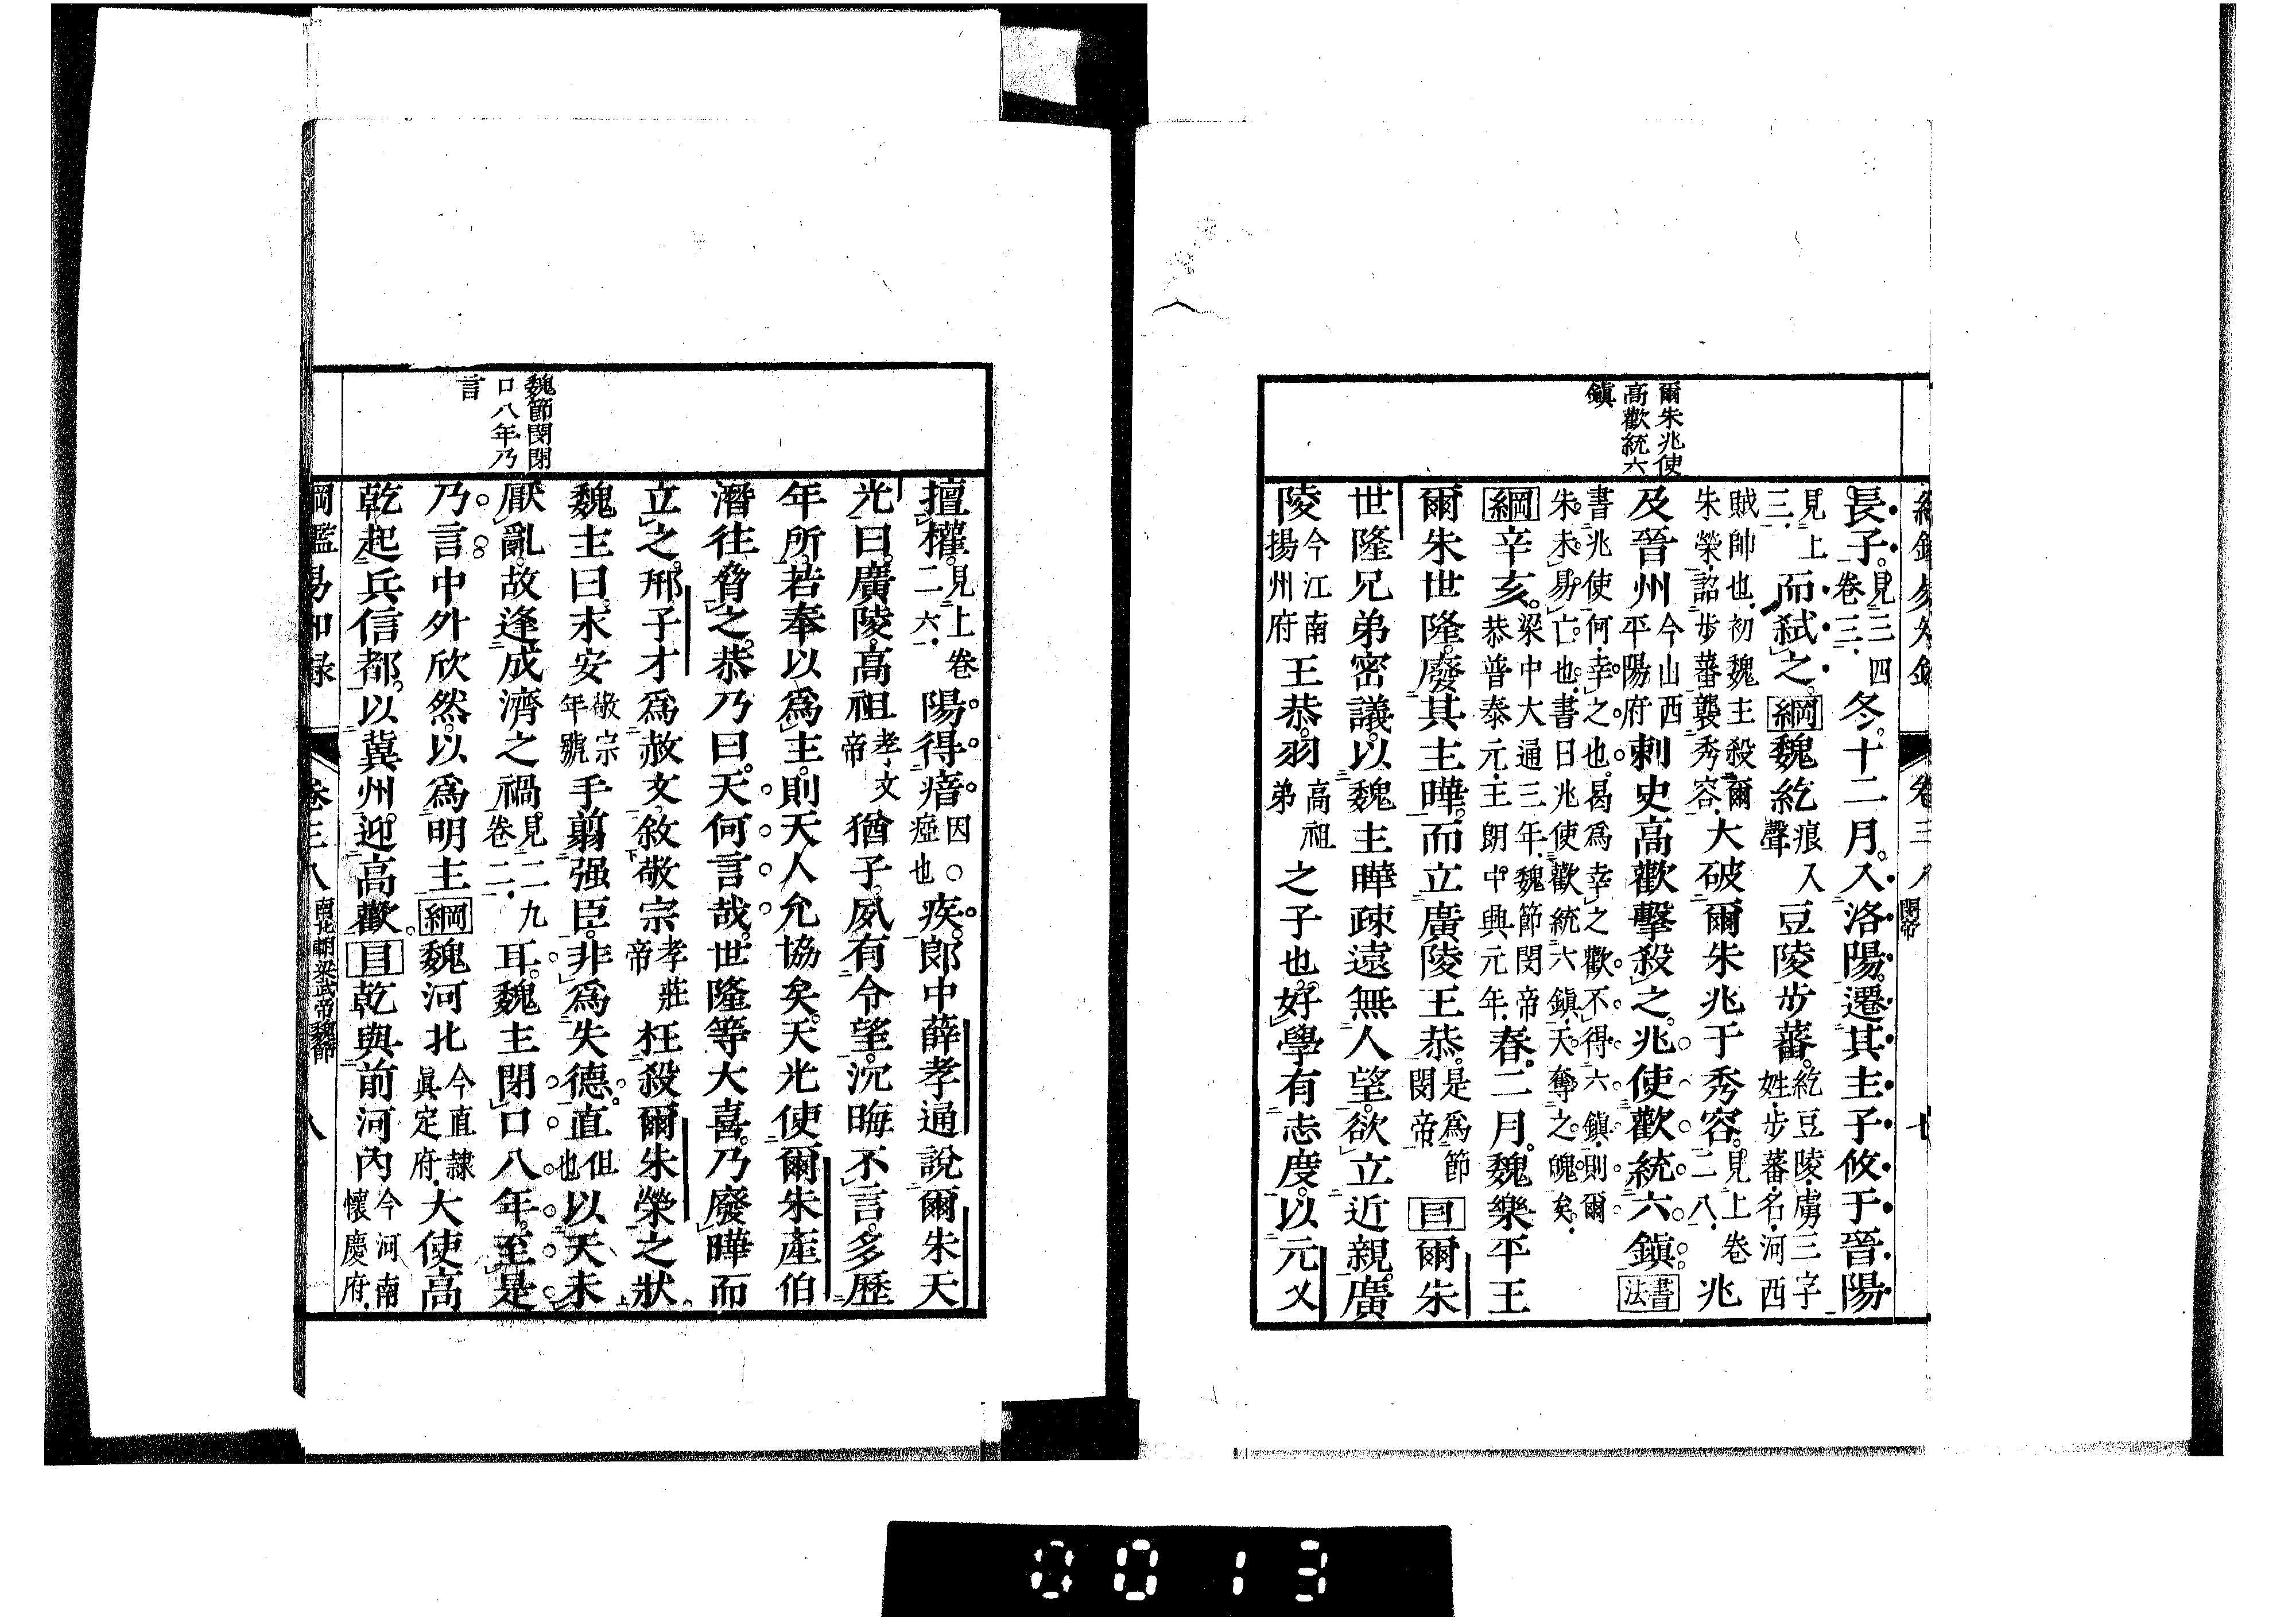 爾朱兆使
高歡統六
鎭
長子見三四卷三冬十二月入洛陽遷其主子攸于晉陽
見上三而弑之綱魏紇痕入聲豆陵步蕃紇豆陵虜三字姓步蕃名河西
賊帥也初魏主殺爾朱榮詔步蕃襲秀容大破爾朱兆于秀容見上卷二八兆
及晉州今山西平陽府刺史高歡擊殺之兆使歡統六鎭書法
書兆使何幸之也曷爲幸之歡不得六鎭則爾朱未易亡也書曰兆使歡統六鎭天奪之魄矣
綱辛亥梁中大通三年魏節閔帝恭普泰元主朗中興元年春二月魏樂平王
爾朱世隆廢其主曄而立廣陵王恭是爲節閔帝目爾朱
世隆兄弟密議以魏主曄疎遠無人望欲立近親廣
陵今江南揚州府王恭羽高祖弟之子也好學有志度以元乂
綱鑑易知錄 卷三八
魏節閔閉
口八年乃
言
擅權見上卷二六陽得瘖因○瘂也疾郎中薛孝通說爾朱天
光曰廣陵高祖孝文帝猶子夙有令望沉晦不言多歷
年所若奉以爲主則天人允協矣天光使爾朱產伯
潛往脅之恭乃曰天何言哉世隆等大喜乃廢曄而
立之邢子才爲赦文敘敬宗孝莊帝枉殺爾朱榮之狀
魏主曰永安敬宗年號手翦强臣非爲失德直但也以天未
厭亂故逢成濟之禍見二九卷二耳魏主閉口八年至是
乃言中外欣然以爲明主綱魏河北今直隸眞定府大使高
乾起兵信都以冀州迎高歡目乾與前河內今河南懷慶府
綱鑑易知錄 卷三八 南北朝梁武帝魏節 八